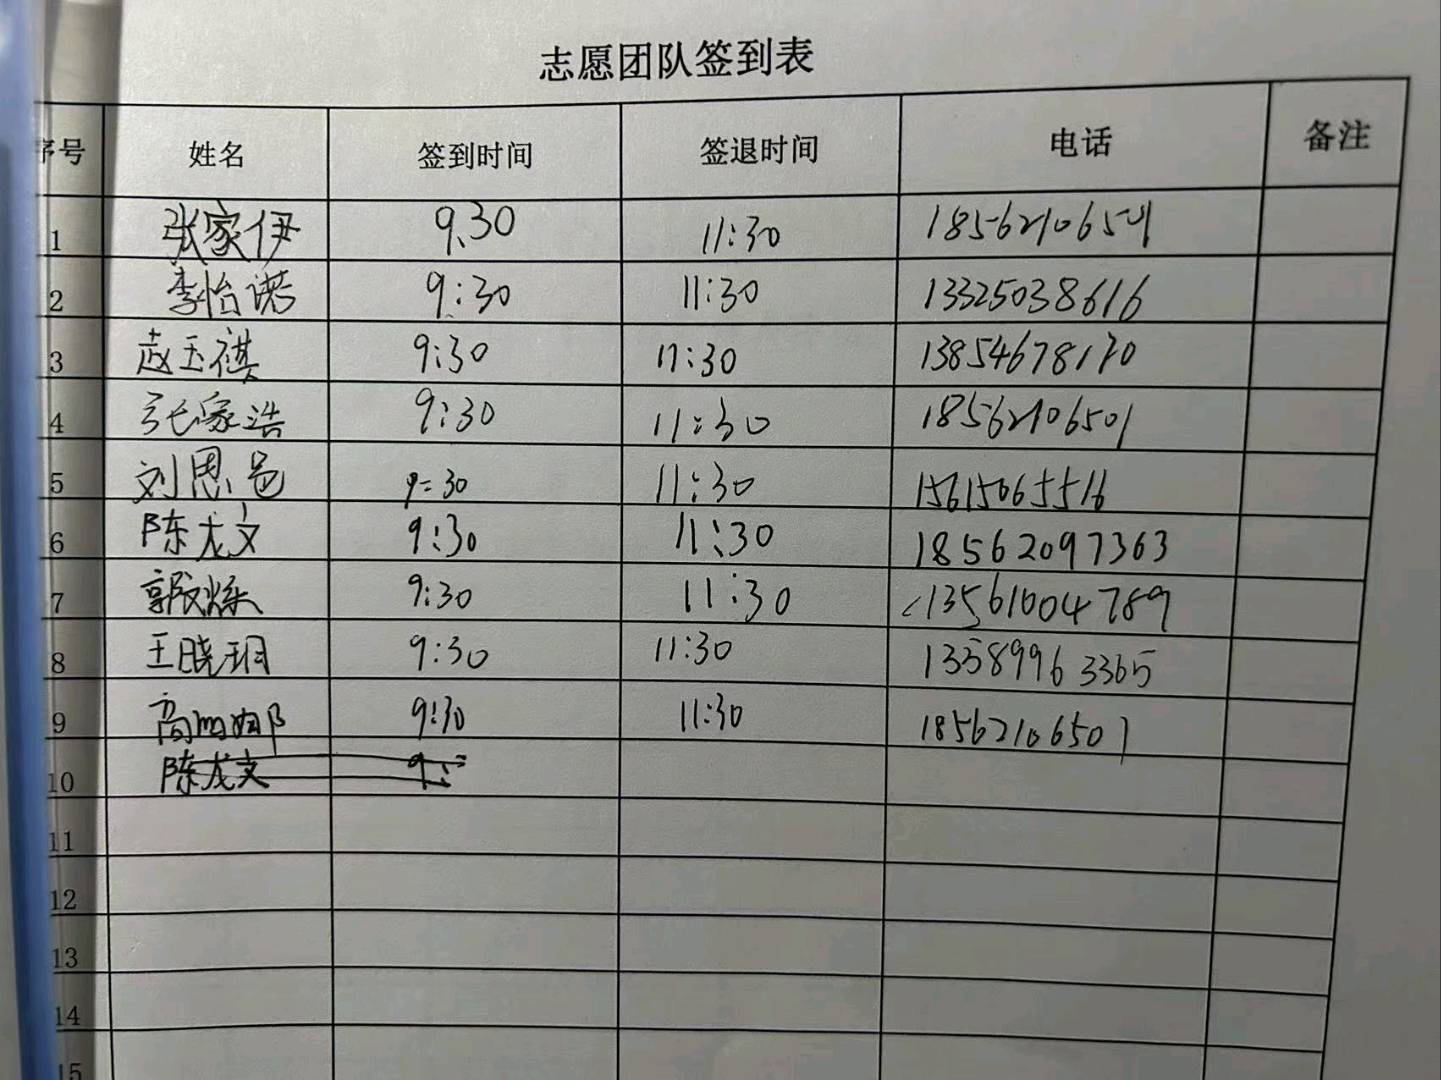 志愿团队签到表
序号 姓名 签到时间 签退时间 电话 备注
1 张家伊 9.30 11:30
2 李怡诺 9:30 11:30 13325038616
3 赵玉祺 9:30 11:30 13854678170
4 张家浩 9:30 11:30 18562106501
5 刘恩 9:30 11:30 15615065516
6 陈龙文 9:30 11:30 18562097363
7 郭 9:30 11:30 13561004789
8 王晓玥 9:30 11:30 13589963365
9 高 9:30 11:30 18562106501
10 陈龙文 9:
11
12
13
14
15